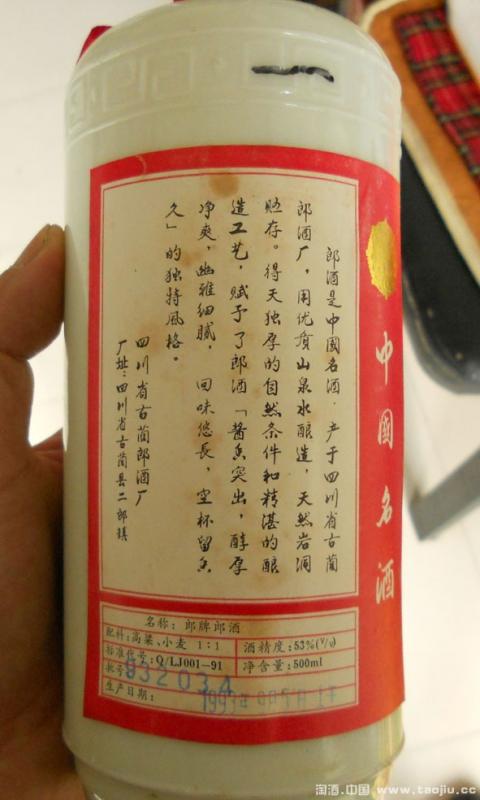 郎酒是中國名酒，产于四川省古蔺
郎酒厂，用优質山泉水酿造，天然岩洞
贮存。得天独厚的自然条件和精湛的酿
造工艺，赋予了郎酒「醬香突出，醇厚
净爽，幽雅细腻，回味悠長，空杯留香
久」的独特風格。
四川省古蔺郎酒厂
厂址：四川省古蔺县二郎鎮
中國名酒
名称：郎牌郎酒
配料：高粱、小麦 1:1
酒精度：53%(V/V)
标准代号：Q/LJ001-91
净含量：500ml
批号：932034
生产日期：1993年
淘酒.中国 www.taojiu.cc